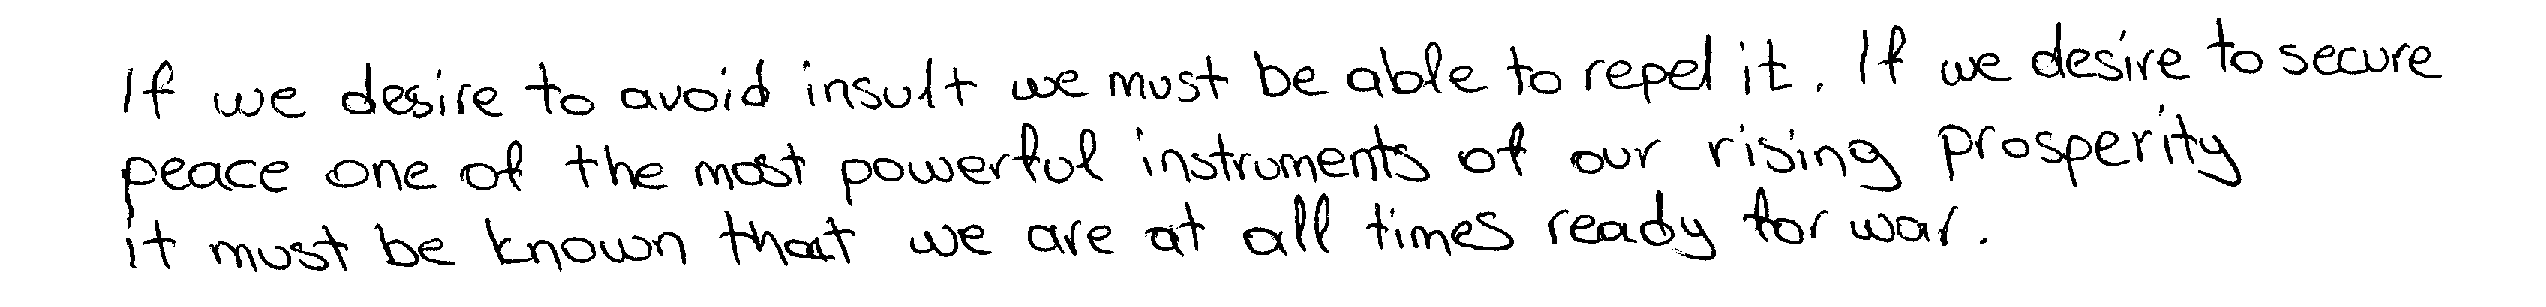 If we desire to avoid insult we must be able to repel it. If we desire to secure
peace one of the most powerful instruments of our rising prosperity
it must be known that we are at all times ready for war.